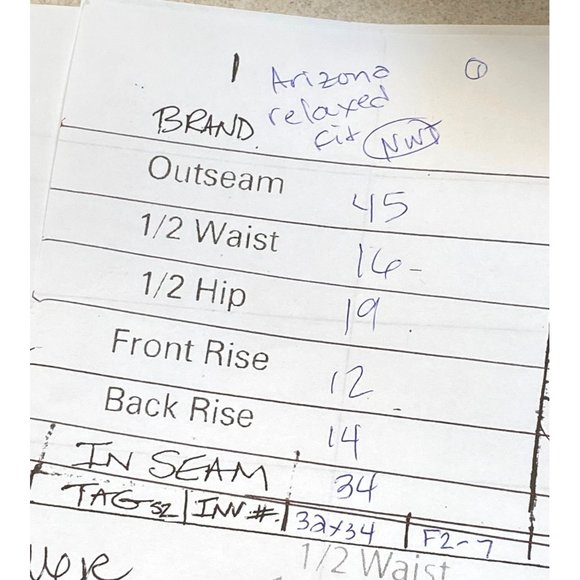 1 Arizona ①
BRAND. relaxed
fit NWT
Outseam 45
1/2 Waist 16-
1/2 Hip 19.
Front Rise 12-
Back Rise 14
IN SEAM 34
TAG SZ | INV #. | 32x34 | F2-7
1/2 Waist